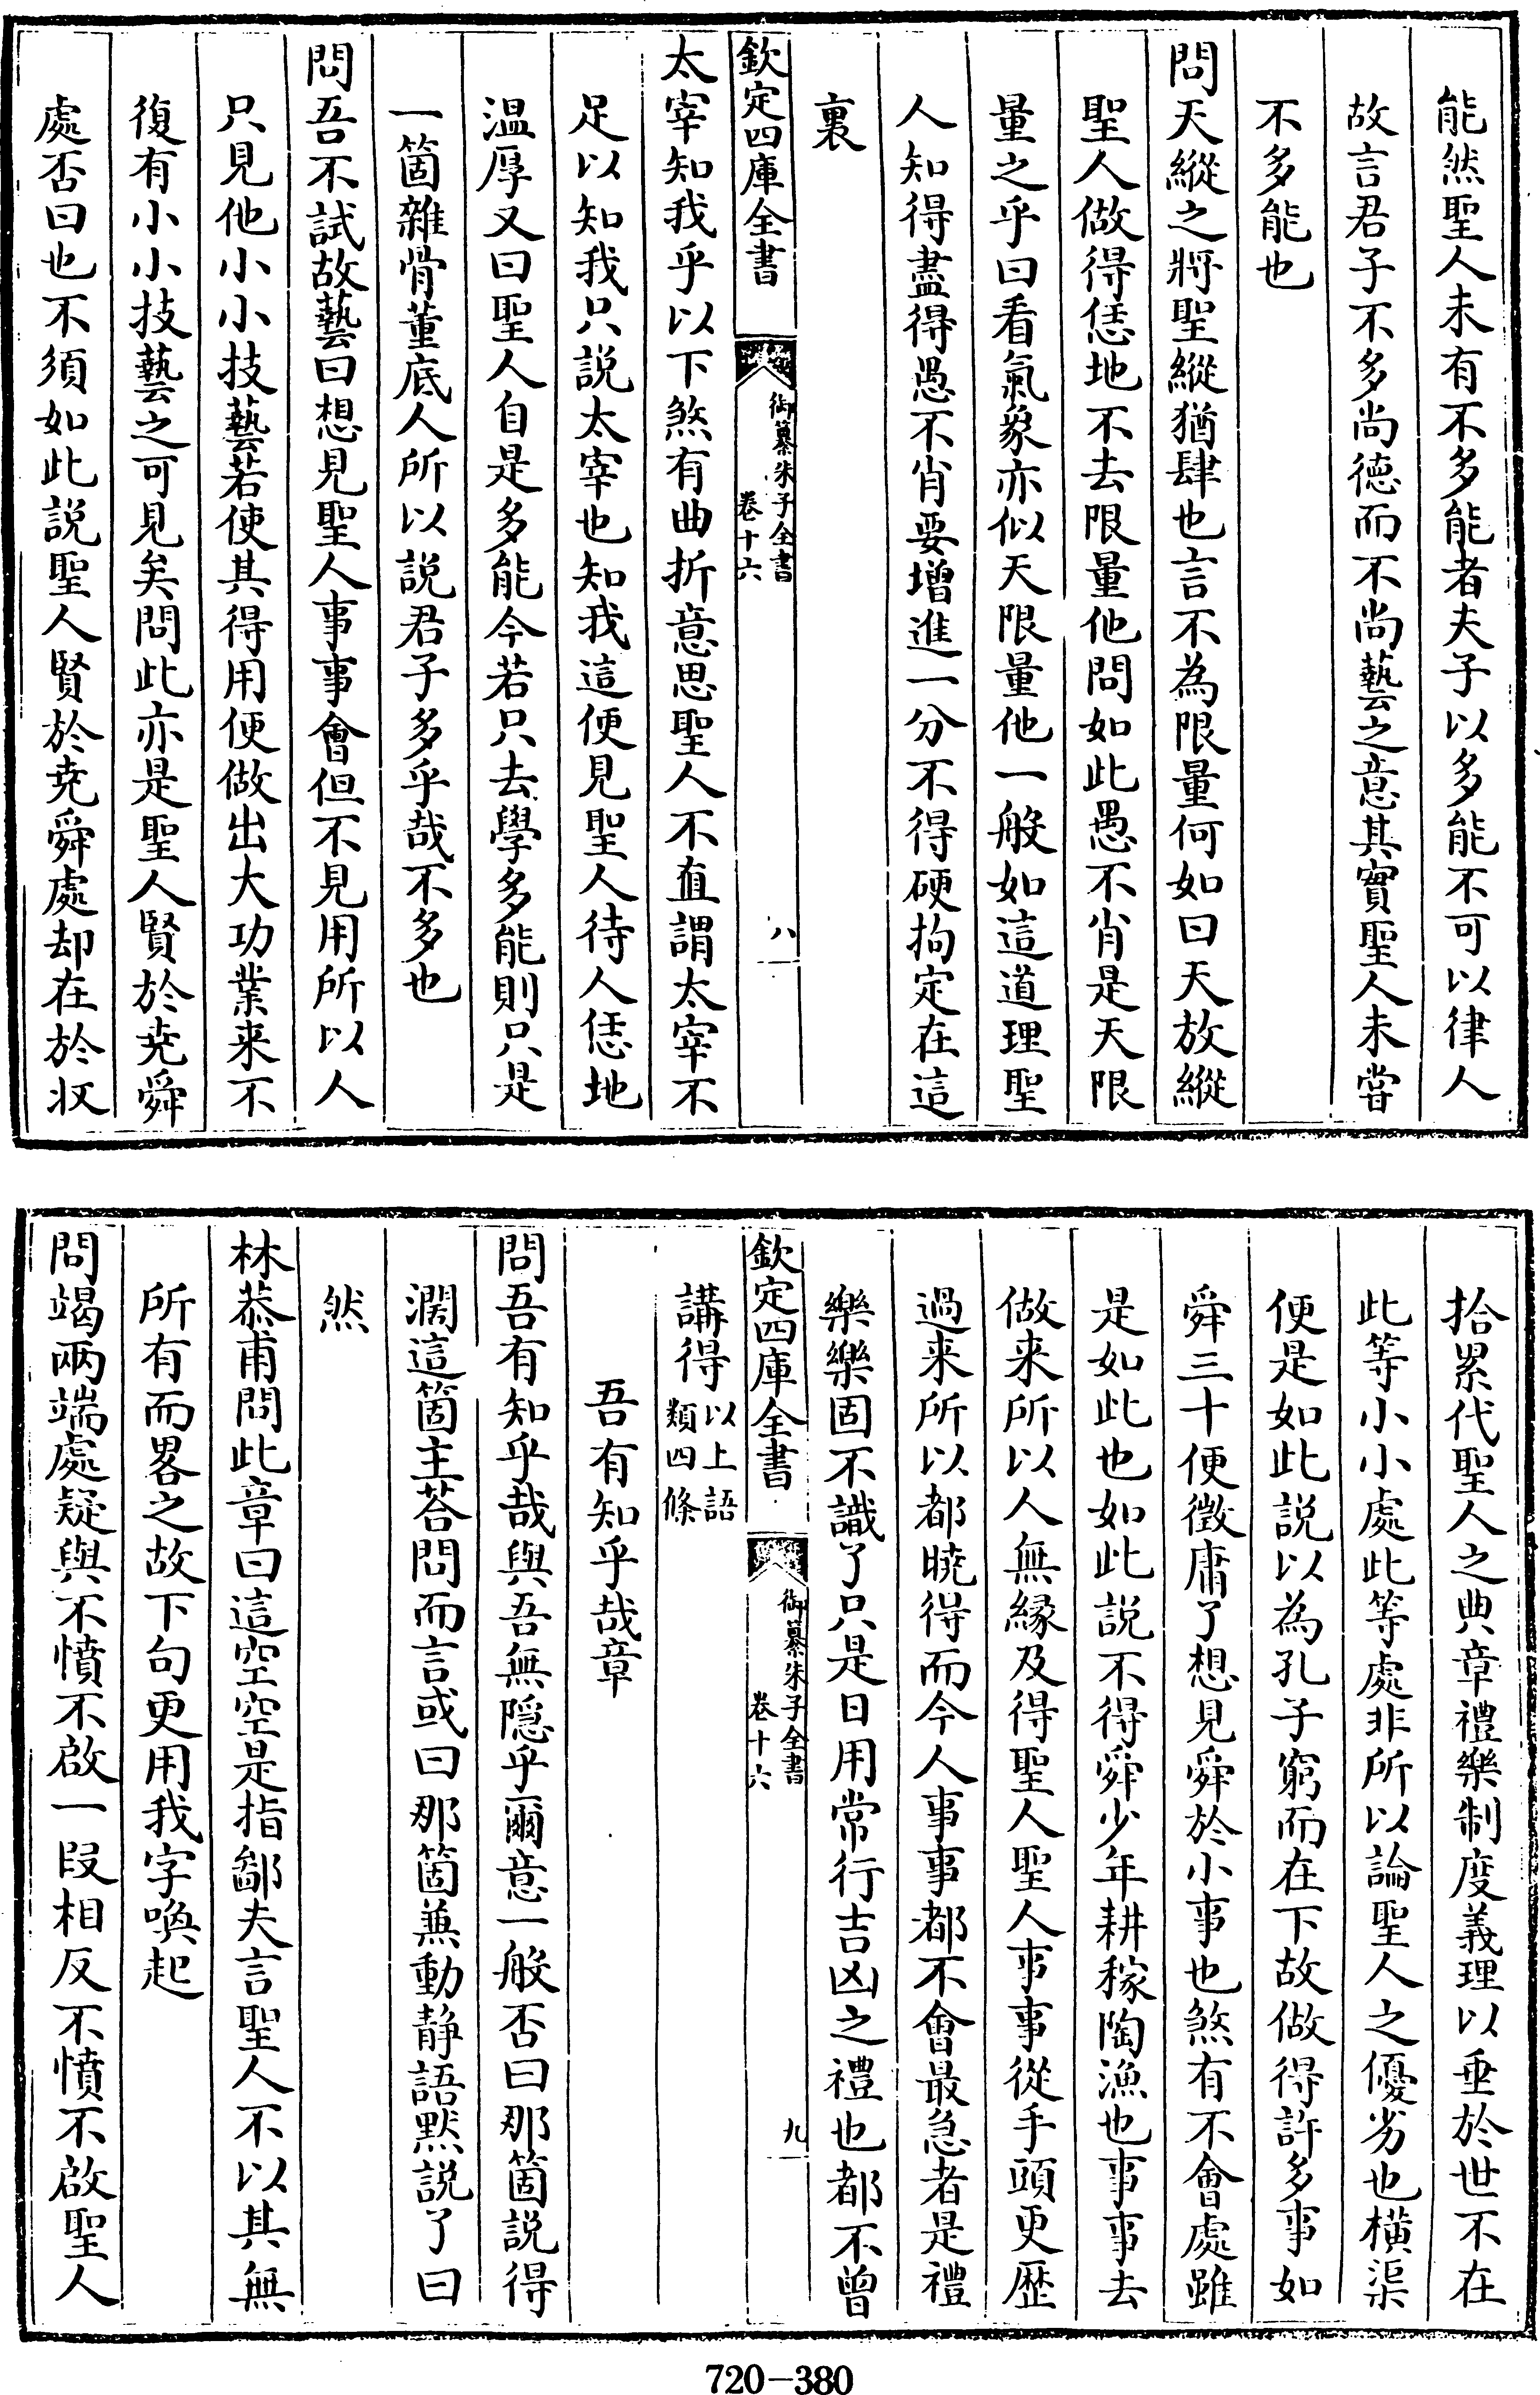 能然聖人未有不多能者夫子以多能不可以律人
故言君子不多尚德而不尚藝之意其實聖人未嘗
不多能也
問天縱之將聖縱猶肆也言不為限量何如曰天放縱
聖人做得恁地不去限量他問如此愚不肖是天限
量之乎曰看氣象亦似天限量他一般如這道理聖
人知得盡得愚不肖要增進一分不得硬拘定在這
裏
欽定四庫全書
御纂朱子全書
卷十六
八
太宰知我乎以下煞有曲折意思聖人不直謂太宰不
足以知我只説太宰也知我這便見聖人待人恁地
温厚又曰聖人自是多能今若只去學多能則只是
一箇雜骨董底人所以説君子多乎哉不多也
問吾不試故藝曰想見聖人事事會但不見用所以人
只見他小小技藝若使其得用便做出大功業来不
復有小小技藝之可見矣問此亦是聖人賢於尭舜
處否曰也不須如此説聖人賢於尭舜處却在於收
拾累代聖人之典章禮樂制度義理以垂於世不在
此等小小處此等處非所以論聖人之優劣也橫渠
便是如此説以為孔子窮而在下故做得許多事如
舜三十便徵庸了想見舜於小事也煞有不會處雖
是如此也如此説不得舜少年耕稼陶漁也事事去
做来所以人無縁及得聖人聖人事事從手頭更歴
過来所以都曉得而今人事事都不會最急者是禮
樂樂固不識了只是日用常行吉凶之禮也都不曾
欽定四庫全書
御纂朱子全書
卷十六
九
講得以上語類四條
吾有知乎哉章
問吾有知乎哉與吾無隠乎爾意一般否曰那箇説得
濶這箇主荅問而言或曰那箇兼動静語黙説了曰
然
林恭甫問此章曰這空空是指鄙夫言聖人不以其無
所有而畧之故下句更用我字喚起
問竭兩端處疑與不憤不啟一段相反不憤不啟聖人
720-380